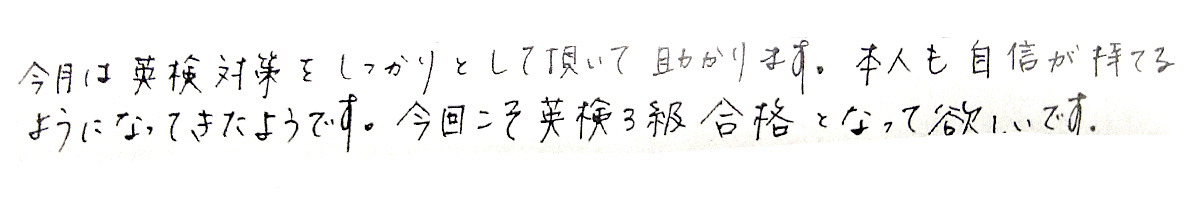 今月は英検対策をしっかりとして頂いて助かります。本人も自信が持てる
ようになってきたようです。今回こそ英検3級合格となって欲しいです.